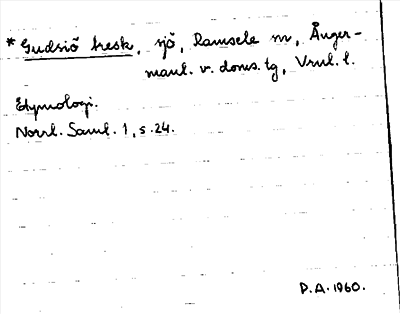 * Gudsiö tresk, sjö, Ramsele sn, Ånger-
manl. v. doms. tg, Vrnl. l.
Etymologi.
Norrl. Saml. 1, s. 24.
P.A. 1960.